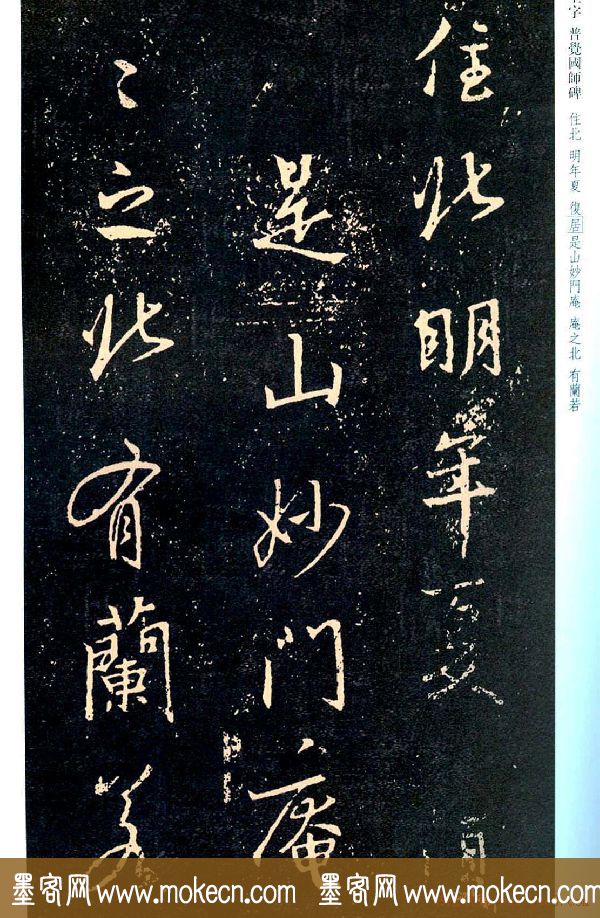 字 普覺國師碑 住北 明年夏 復居是山妙門庵 庵之北 有蘭若
住北明年夏
是山妙門庵
〻之北有蘭若
墨客网www.mokecn.com 墨客网www.mokecn.com